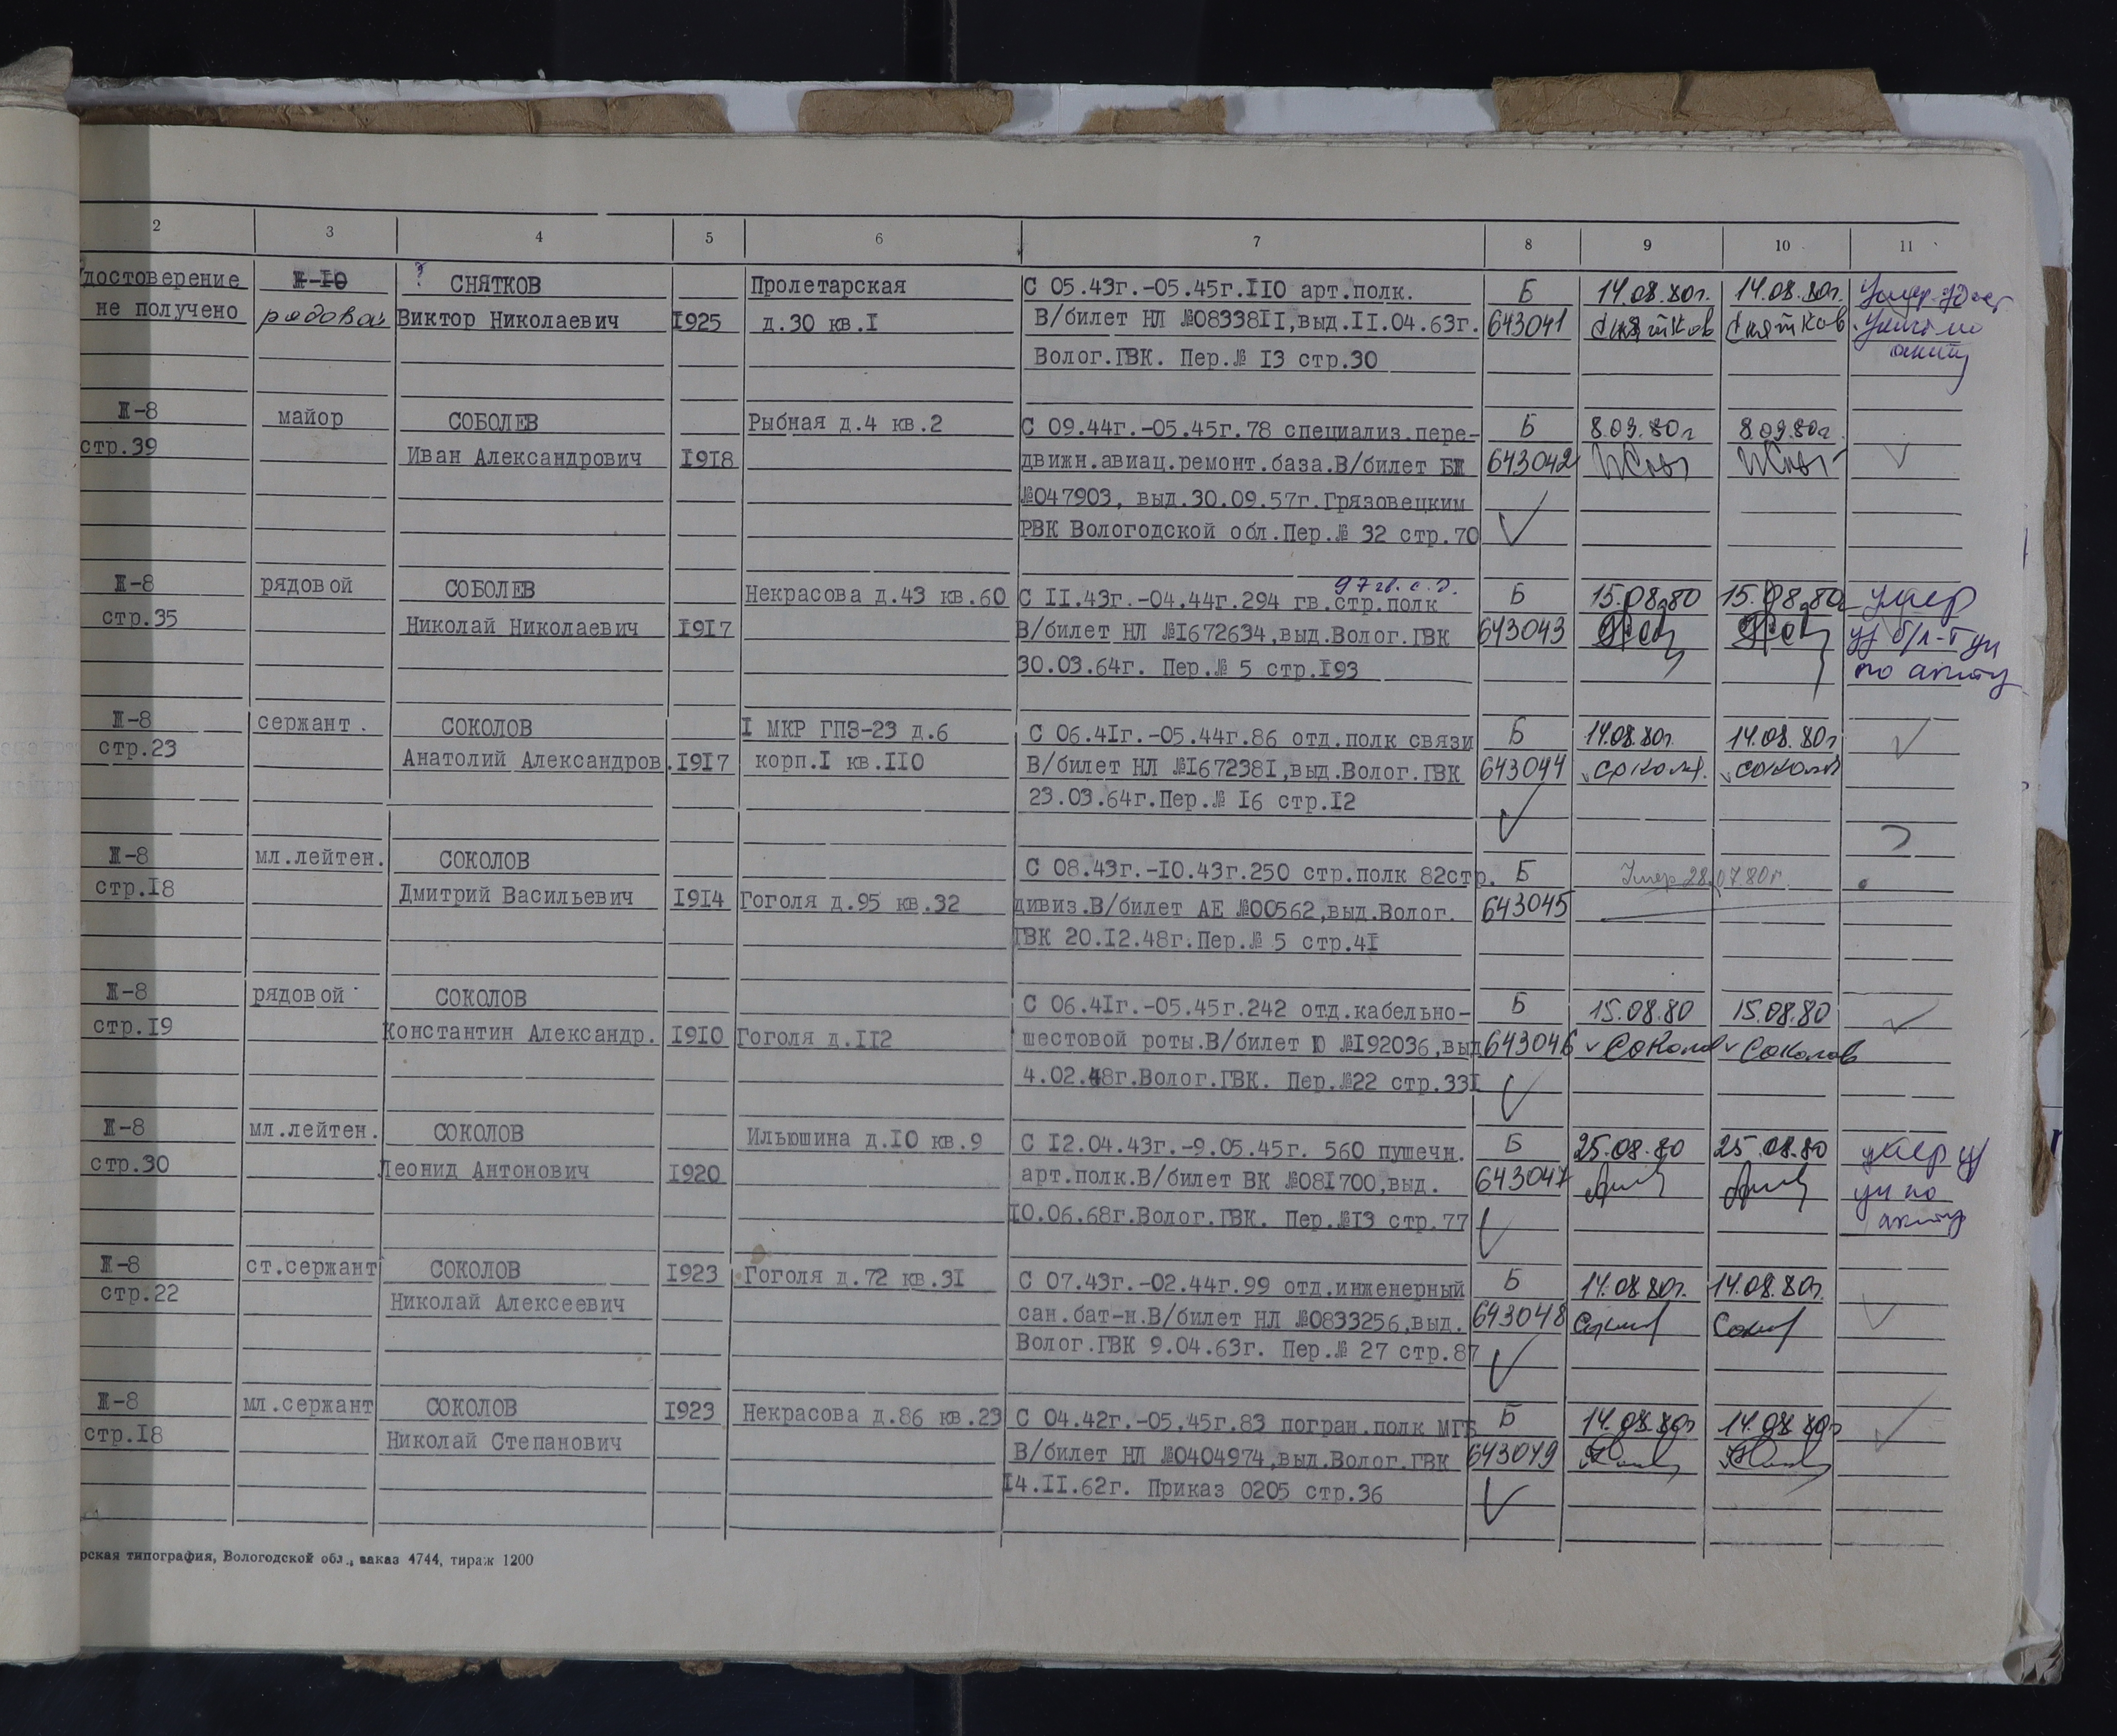 2 3 4 5 6 7 8 9 10 11
достоверение Ж-10 ? СНЯТКОВ Пролетарская С 05.43г.-05.45г.110 арт.полк. Б 14.08.80г. 14.08.80г. Умер.
не получено рядовой Виктор Николаевич 1925 д.30 кв.1 В/билет НЛ №0833811,выд.11.04.63г. 643041 Снятков Снятков
Волог.ГВК. Пер.№ 13 стр.30 акту
Ж-8 майор СОБОЛЕВ Рыбная д.4 кв.2 С 09.44г.-05.45г.78 специализ.пере- Б 8.09.80г 8.09.80г.
стр.39 Иван Александрович 1918 движн.авиац.ремонт.база.В/билет БЖ 643042
№047903, выд.30.09.57г.Грязовецким
РВК Вологодской обл.Пер.№ 32 стр.70
97 гв. с. д.
Ж-8 рядовой СОБОЛЕВ Некрасова д.43 кв.60 С 11.43г.-04.44г.294 гв.стр.полк Б 15.08.80 15.08.80 умер
стр.35 Николай Николаевич 1917 В/билет НЛ №1672634,выд.Волог.ГВК 643043
30.03.64г. Пер.№ 5 стр.193 по акту
Ж-8 сержант. СОКОЛОВ 1 МКР ГПЗ-23 д.6 С 06.41г.-05.44г.86 отд.полк связи Б 14.08.80г. 14.08.80г
стр.23 Анатолий Александров. 1917 корп.1 кв.110 В/билет НЛ №1672381,выд.Волог.ГВК 643044
23.03.64г.Пер.№ 16 стр.12
Ж-8 мл.лейтен. СОКОЛОВ С 08.43г.-10.43г.250 стр.полк 82стр. Б Умер 28.07.80г.
стр.18 Дмитрий Васильевич 1914 Гоголя д.95 кв.32 дивиз.В/билет АЕ №00562,выд.Волог. 643045
ГВК 20.12.48г.Пер.№ 5 стр.41
Ж-8 рядовой СОКОЛОВ С 06.41г.-05.45г.242 отд.кабельно- Б 15.08.80 15.08.80
стр.19 Константин Александр. 1910 Гоголя д.112 шестовой роты.В/билет Ю №192036,выд 643046 Соколов Соколов
4.02.48г.Волог.ГВК. Пер.№22 стр.331
Ж-8 мл.лейтен. СОКОЛОВ Ильюшина д.10 кв.9 С 12.04.43г.-9.05.45г. 560 пушечн. Б 25.08.80 25.08.80 умер
стр.30 Леонид Антонович 1920 арт.полк.В/билет ВК №081700,выд. 643047 по
10.06.68г.Волог.ГВК. Пер.№13 стр.77 акту
Ж-8 ст.сержант СОКОЛОВ 1923 Гоголя д.72 кв.31 С 07.43г.-02.44г.99 отд.инженерный Б 14.08.80г. 14.08.80г.
стр.22 Николай Алексеевич сан.бат-н.В/билет НЛ №0833256,выд. 643048
Волог.ГВК 9.04.63г. Пер.№ 27 стр.87
Ж-8 мл.сержант СОКОЛОВ 1923 Некрасова д.86 кв.23 С 04.42г.-05.45г.83 погран.полк МГБ Б 14.08.80г 14.08.80г
стр.18 Николай Степанович В/билет НЛ №0404974,выд.Волог.ГВК 643049
14.11.62г. Приказ 0205 стр.36
рская типография, Вологодской обл., заказ 4744, тираж 1200